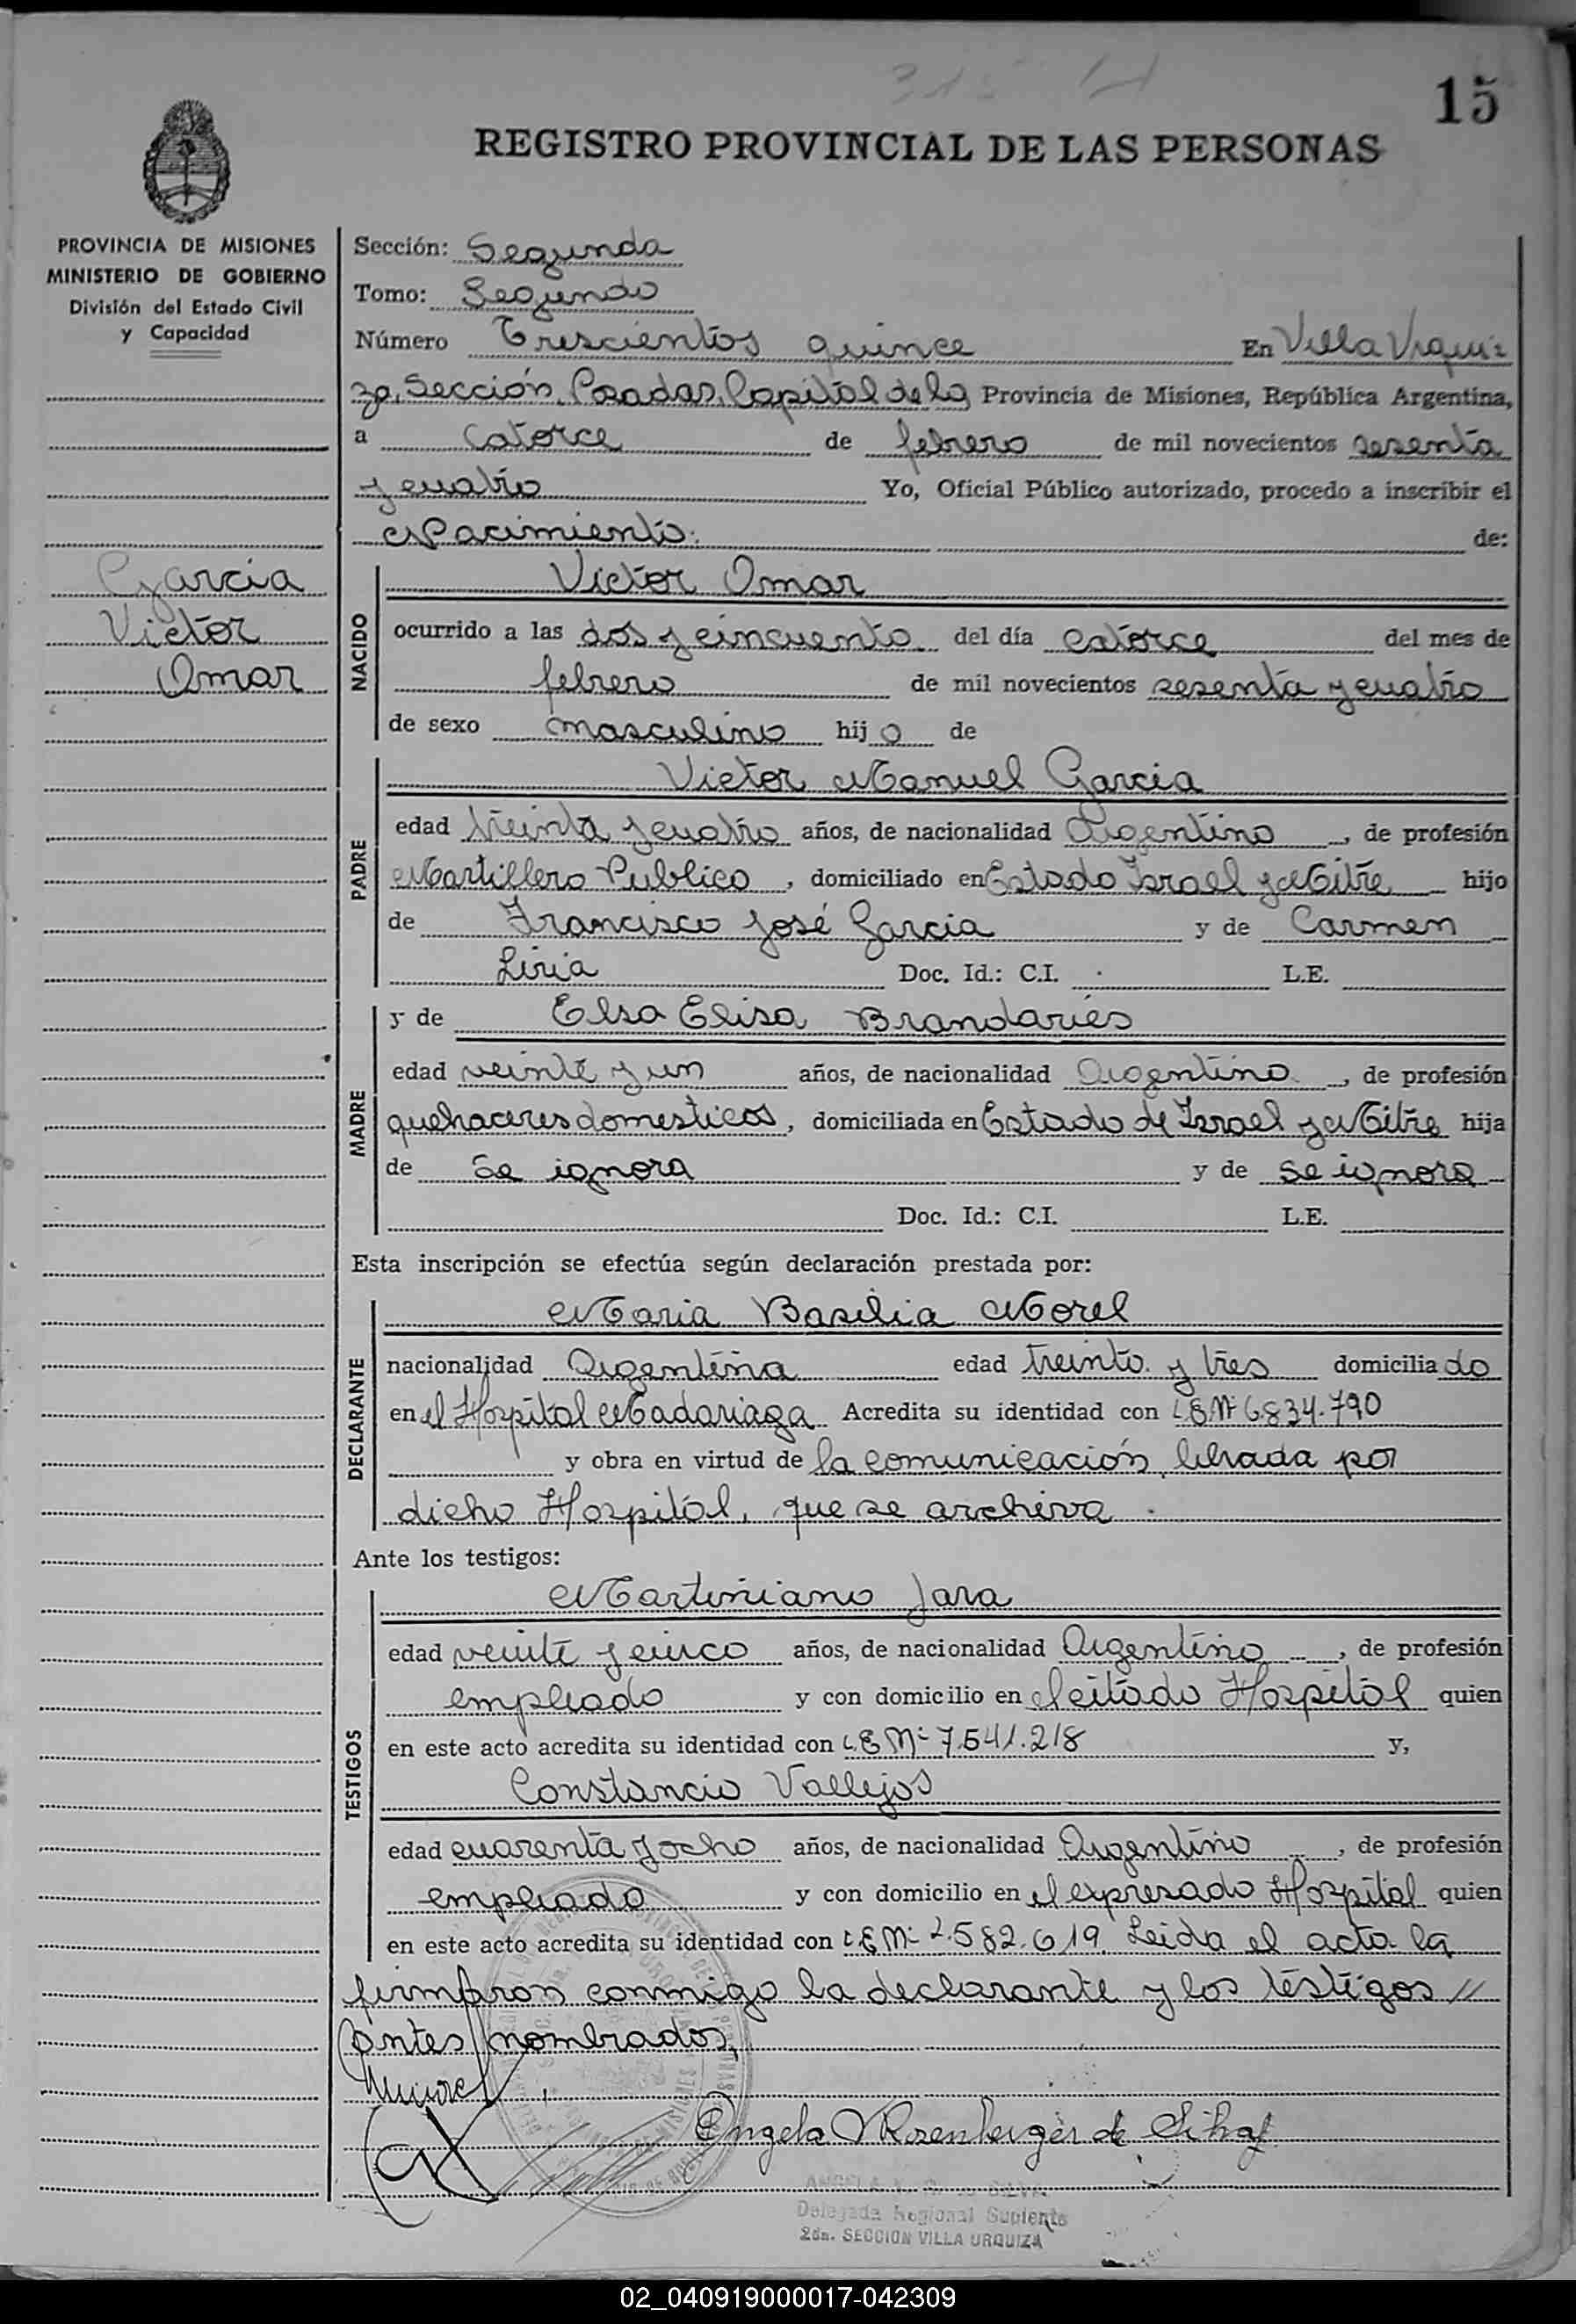 315
15
REGISTRO PROVINCIAL DE LAS PERSONAS
PROVINCIA DE MISIONES
MINISTERIO DE GOBIERNO
División del Estado Civil
y Capacidad
García
Victor
Omar
Sección: Segunda
Tomo: Segundo
Número Trescientos quince En Villa Urqui
za, Sección, Posadas, Capital de la Provincia de Misiones, República Argentina,
a catorce de febrero de mil novecientos sesenta
y cuatro Yo, Oficial Público autorizado, procedo a inscribir el
Nacimiento. de:
NACIDO
Victor Omar
ocurrido a las dos y cincuenta del día catorce del mes de
febrero de mil novecientos sesenta y cuatro
de sexo masculino hijo de
PADRE
Victor Manuel García
edad treinta y cuatro años, de nacionalidad Argentino, de profesión
Martillero Publico, domiciliado en Estado Israel y Mitre hijo
de Francisco José García y de Carmen
Liria Doc. Id.: C.I. L.E.
MADRE
y de Elsa Elisa Brandaries
edad veinte y un años, de nacionalidad Argentina, de profesión
quehaceres domesticos, domiciliada en Estado de Israel y Mitre hija
de Se ignora y de se ignora
Doc. Id.: C.I. L.E.
Esta inscripción se efectúa según declaración prestada por:
DECLARANTE
Maria Basilia Morel
nacionalidad Argentina edad treinta y tres domiciliado
en el Hospital Madariaga Acredita su identidad con L.E.Nº 6.834.790
y obra en virtud de la comunicación librada por
dicho Hospital, que se archiva.
Ante los testigos:
TESTIGOS
Martiniano Jara
edad veinte y cinco años, de nacionalidad Argentino, de profesión
empleado y con domicilio en el citado Hospital quien
en este acto acredita su identidad con L.E Nº 7.541.218 y,
Constancio Vallejos
edad cuarenta y ocho años, de nacionalidad Argentino, de profesión
empleado y con domicilio en el expresado Hospital quien
en este acto acredita su identidad con L.E Nº 2.582.619. Leida el acta la
firmaron conmigo la declarante y los testigos //
antes nombrados.
Angela V Rosenberger de Silva
Delegada Regional Suplente
2da. SECCION VILLA URQUIZA
02_040919000017-042309